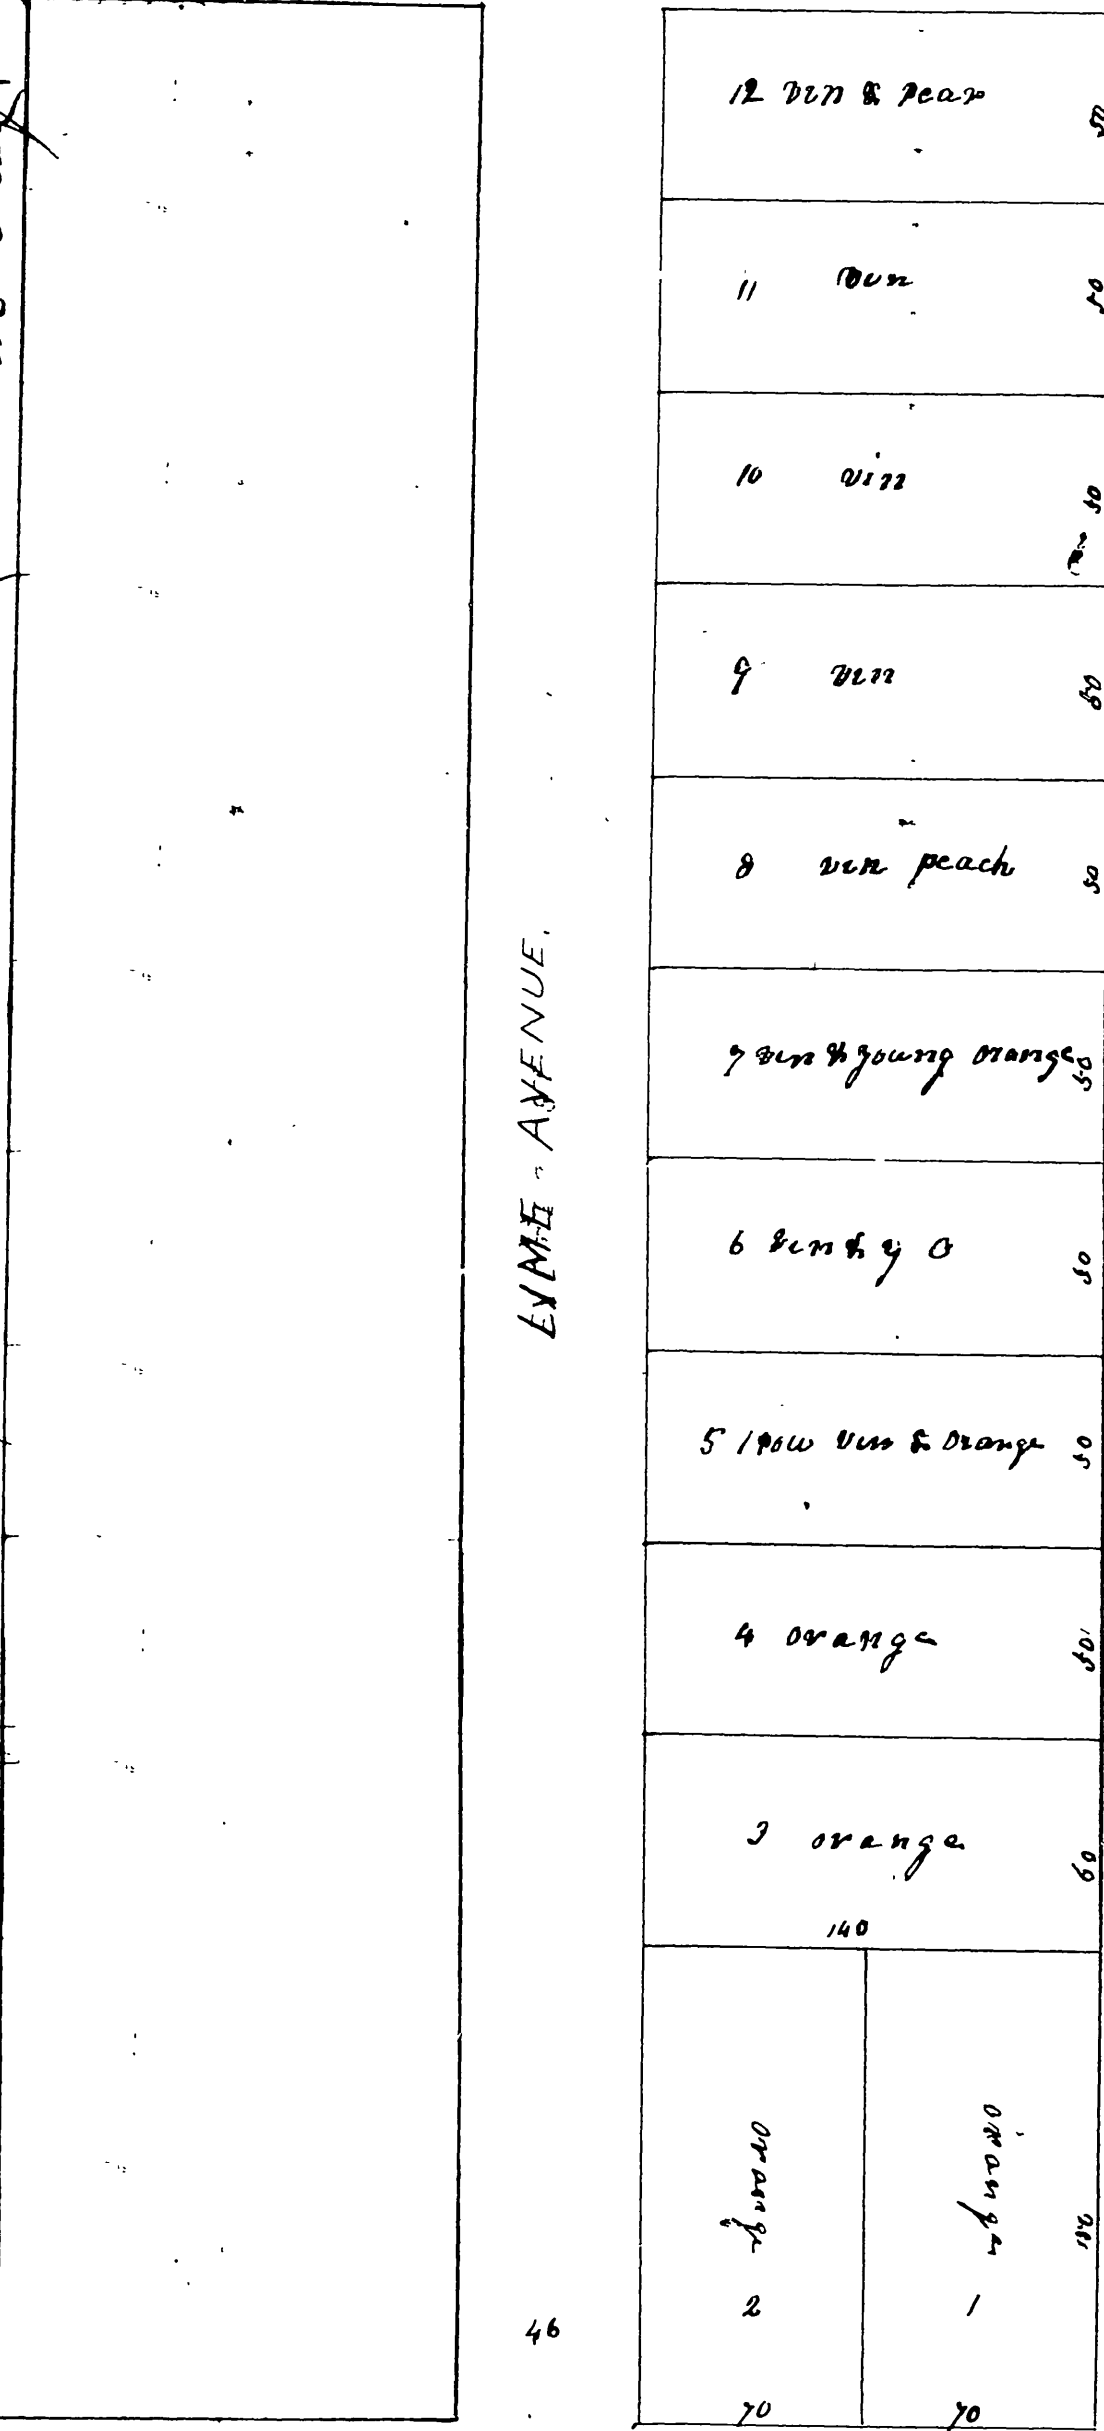 12 vin & pear
50
11 vin
50
10 vin
50
9 vin
50
8 vin peach
50
7 vin & young orange
50
6 vin & y O
50
5 1 row vin & orange
50
4 orange
50
3 orange
60
140
orange 2
orange 1
70
70
46
AVENUE.